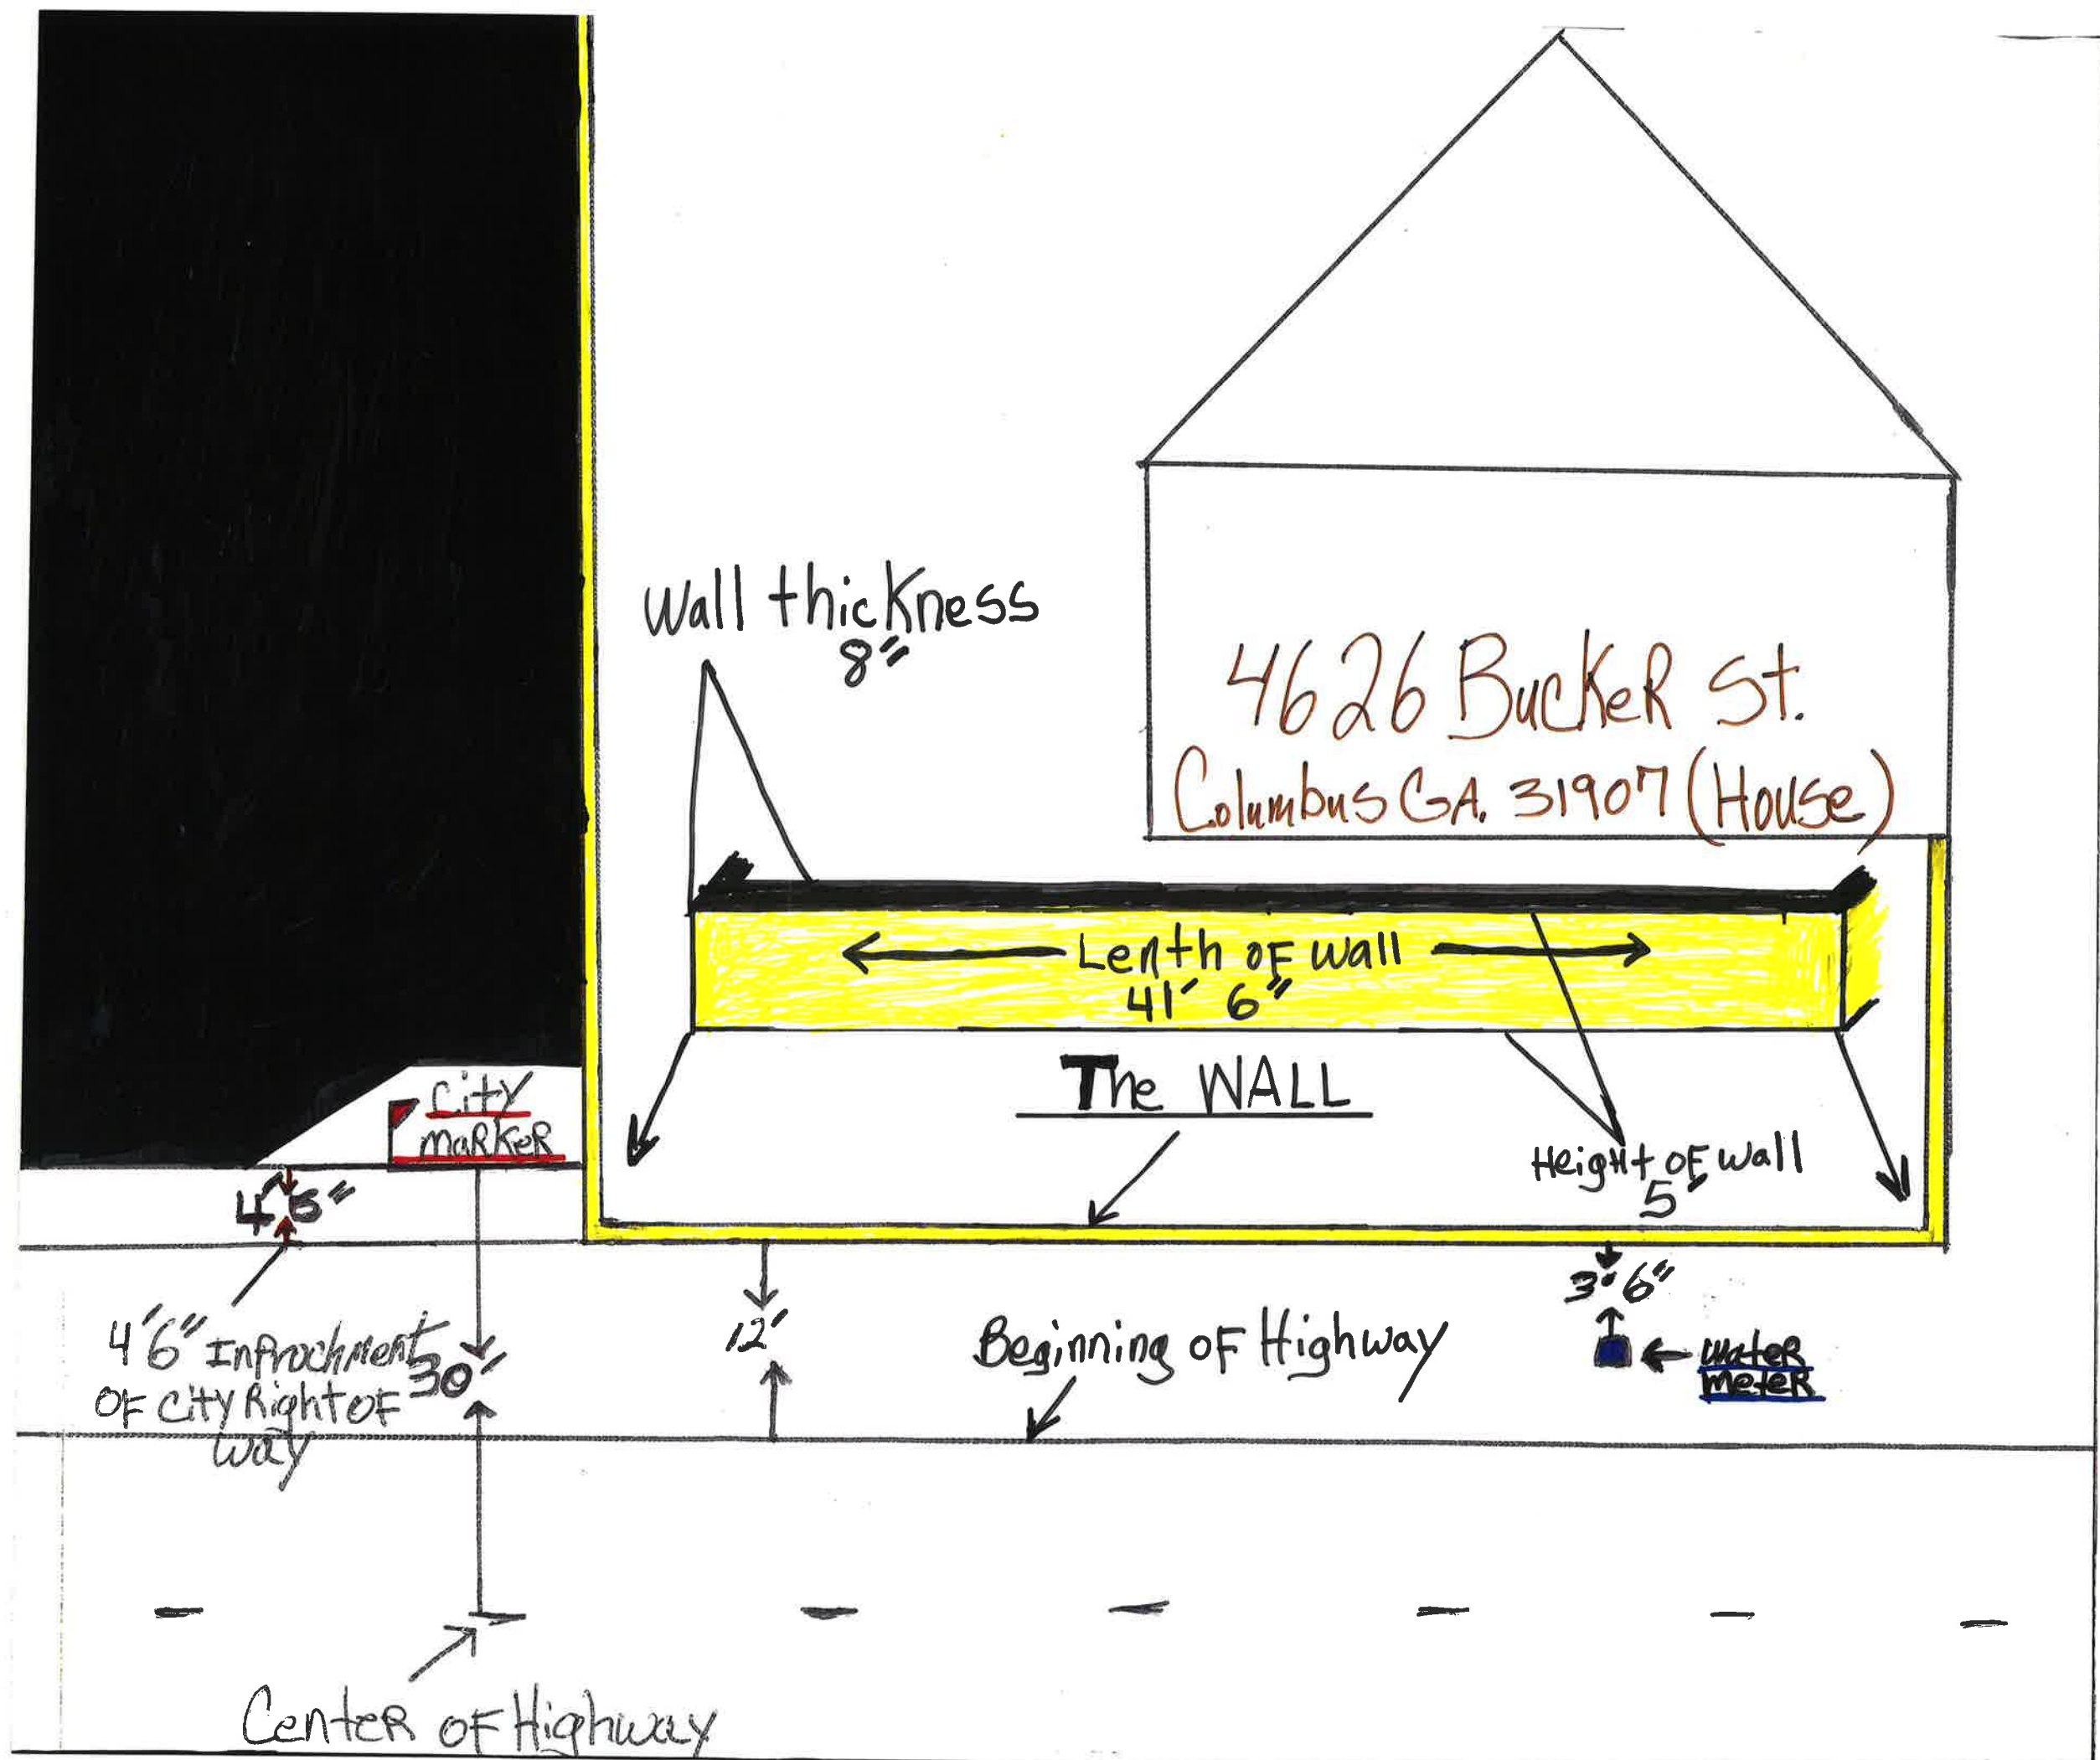 Wall thicKness
8"
4626 BucKeR St.
Columbus GA. 31907 (House)
Lenth oF wall
41' 6"
The WALL
City
MaRKeR
Height oF wall
5'
4' 6"
3' 6"
4'6" Infrochment
OF City Right oF
way
30'
12'
Beginning oF Highway
water
meteR
CenteR oF Highway